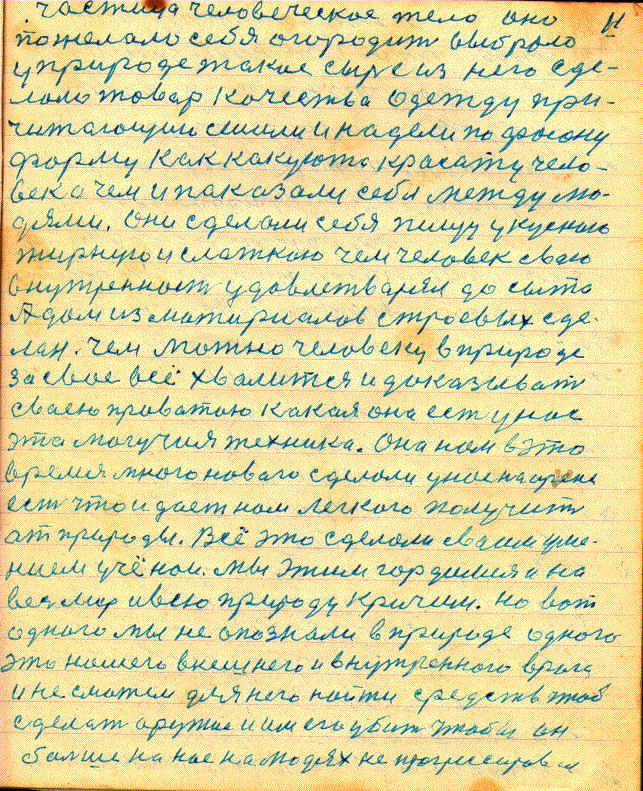 11
частица человеческое тело оно
пожелало себя огородит выбрало
у природе такое сырье из него сде-
лало товар качества одежду при-
читающии сшили и надели по фасону
форму как какуюто красату чело-
века чем и паказали себя между лю-
дями. Они сделали себя пищу укусною
жирную и слаткою чем человек сваю
внутренност удовлетварял до сыта
А дом из матириалов строевых сде-
лан. Чем можно человеку в природе
за свое всё хвалится и доказыват
сваею праватою какая она ест у нас
эта могучия техника. Она нам в это
время много новаго сделали у нас на арене
ест что и дает нам легкого получит
ат природы. Всё это сделали сваим уме-
нием учёнои. Мы этим гордимся и на
вес мир и всю природу кричим. Но вот
одного мы не апознали в природе одного
это нашего внешнего и внутренного врага
и не сматли для него найти средств чтоб
сделат аружие и им его убит чтобы он
болше на нас на людях не прогрессировал